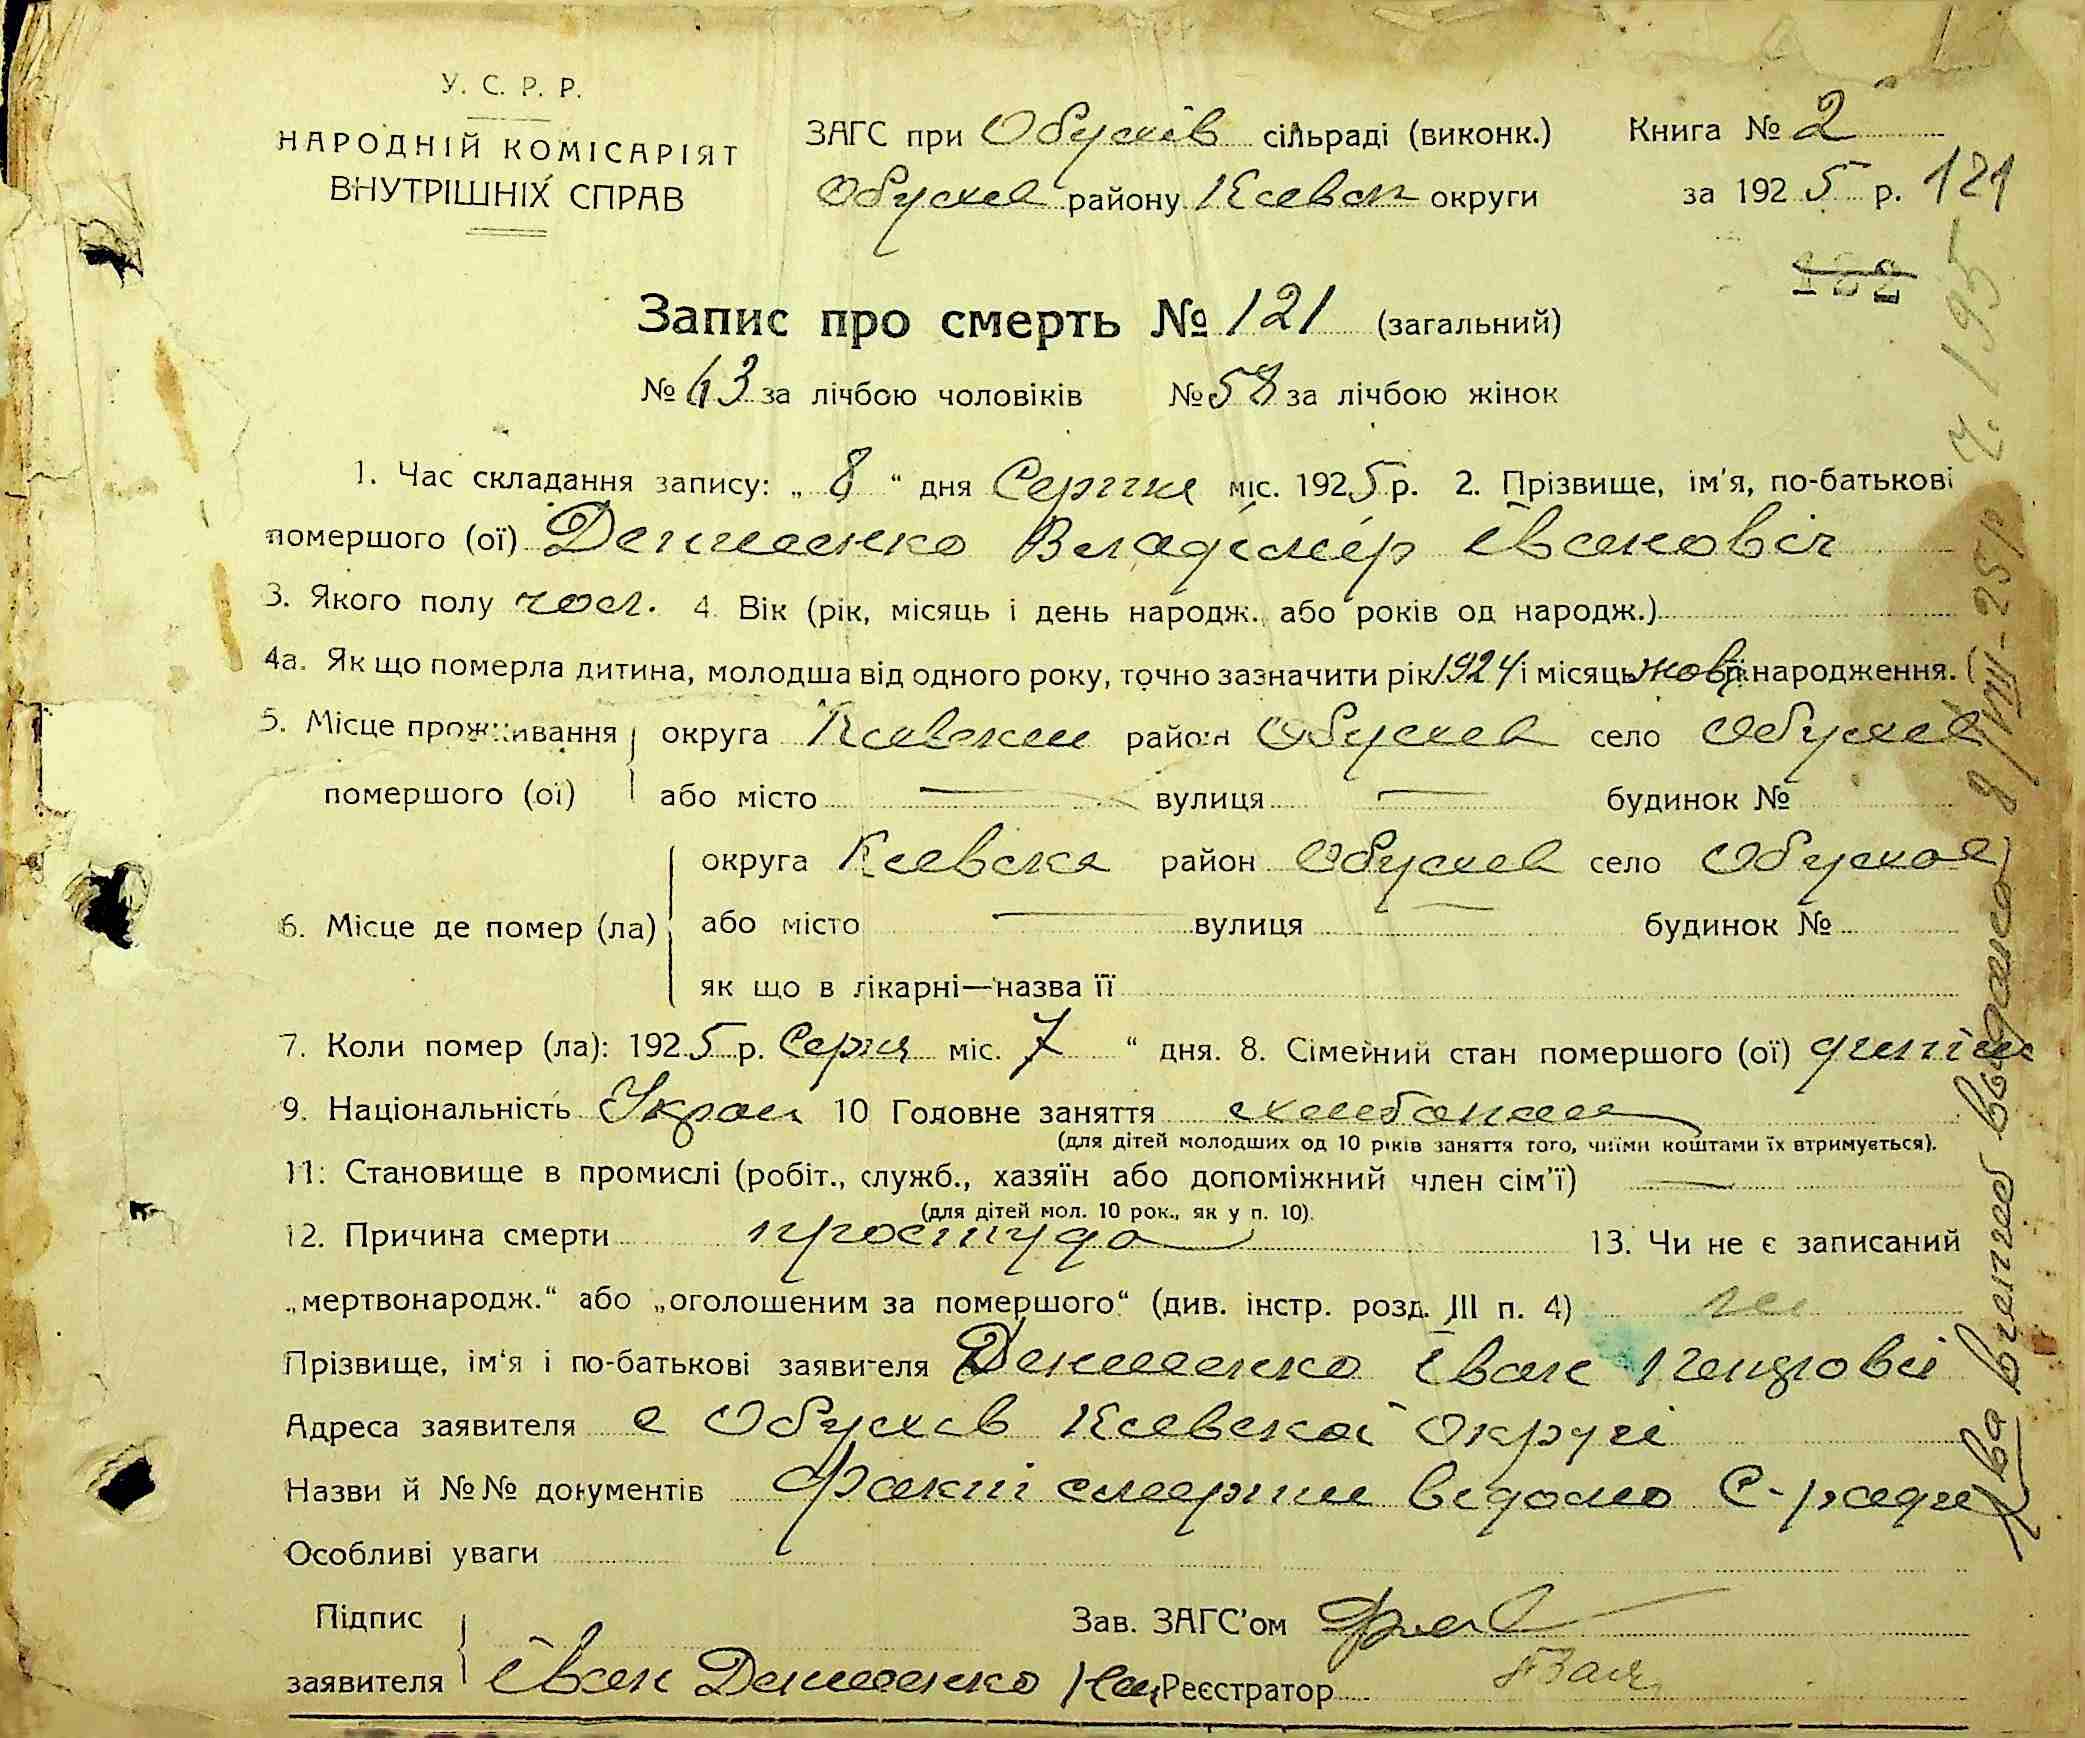 У. С. Р. Р.
НАРОДНІЙ КОМІСАРІЯТ
ВНУТРІШНІХ СПРАВ
ЗАГС при Обухів сільраді (виконк.)
Обухів району Київськ округи
Книга № 2
за 1925 р. 121
122
Запис про смерть № 121 (загальний)
№ 63 за лічбою чоловіків № 58 за лічбою жінок
1. Час складання запису: „ 8 “ дня Серпня міс. 1925 р. 2. Прізвище, ім'я, по-батькові
помершого (ої) Владімір Івановіч
3. Якого полу чол. 4. Вік (рік, місяць і день народж. або років од народж.)
4а. Як що померла дитина, молодша від одного року, точно зазначити рік 1924 і місяць жовт. її народження.
5. Місце проживання округа район Обухів село Обухів
помершого (ої) або місто — вулиця — будинок №
округа Киевска район Обухів село Обухов
6. Місце де помер (ла) або місто — вулиця — будинок №
як що в лікарні—назва її
7. Коли помер (ла): 1925 р. Серпня міс. 7 “ дня. 8. Сімейний стан помершого (ої)
9. Національність Україн 10 Головне заняття
(для дітей молодших од 10 років заняття того, чиїми коштами їх втримується).
11. Становище в промислі (робіт., служб., хазяїн або допоміжний член сім'ї) —
(для дітей мол. 10 рок., як у п. 10).
12. Причина смерти простуда 13. Чи не є записаний
„мертвонародж.“ або „оголошеним за помершого“ (див. інстр. розд. III п. 4) ні
Прізвище, ім'я і по-батькові заявителя Іван
Адреса заявителя с Обухів Киевскої Округі
Назви й №№ документів Факт смерти відомо С-раді
Особливі уваги
Підпис
заявителя Іван
Зав. ЗАГС'ом
Реєстратор